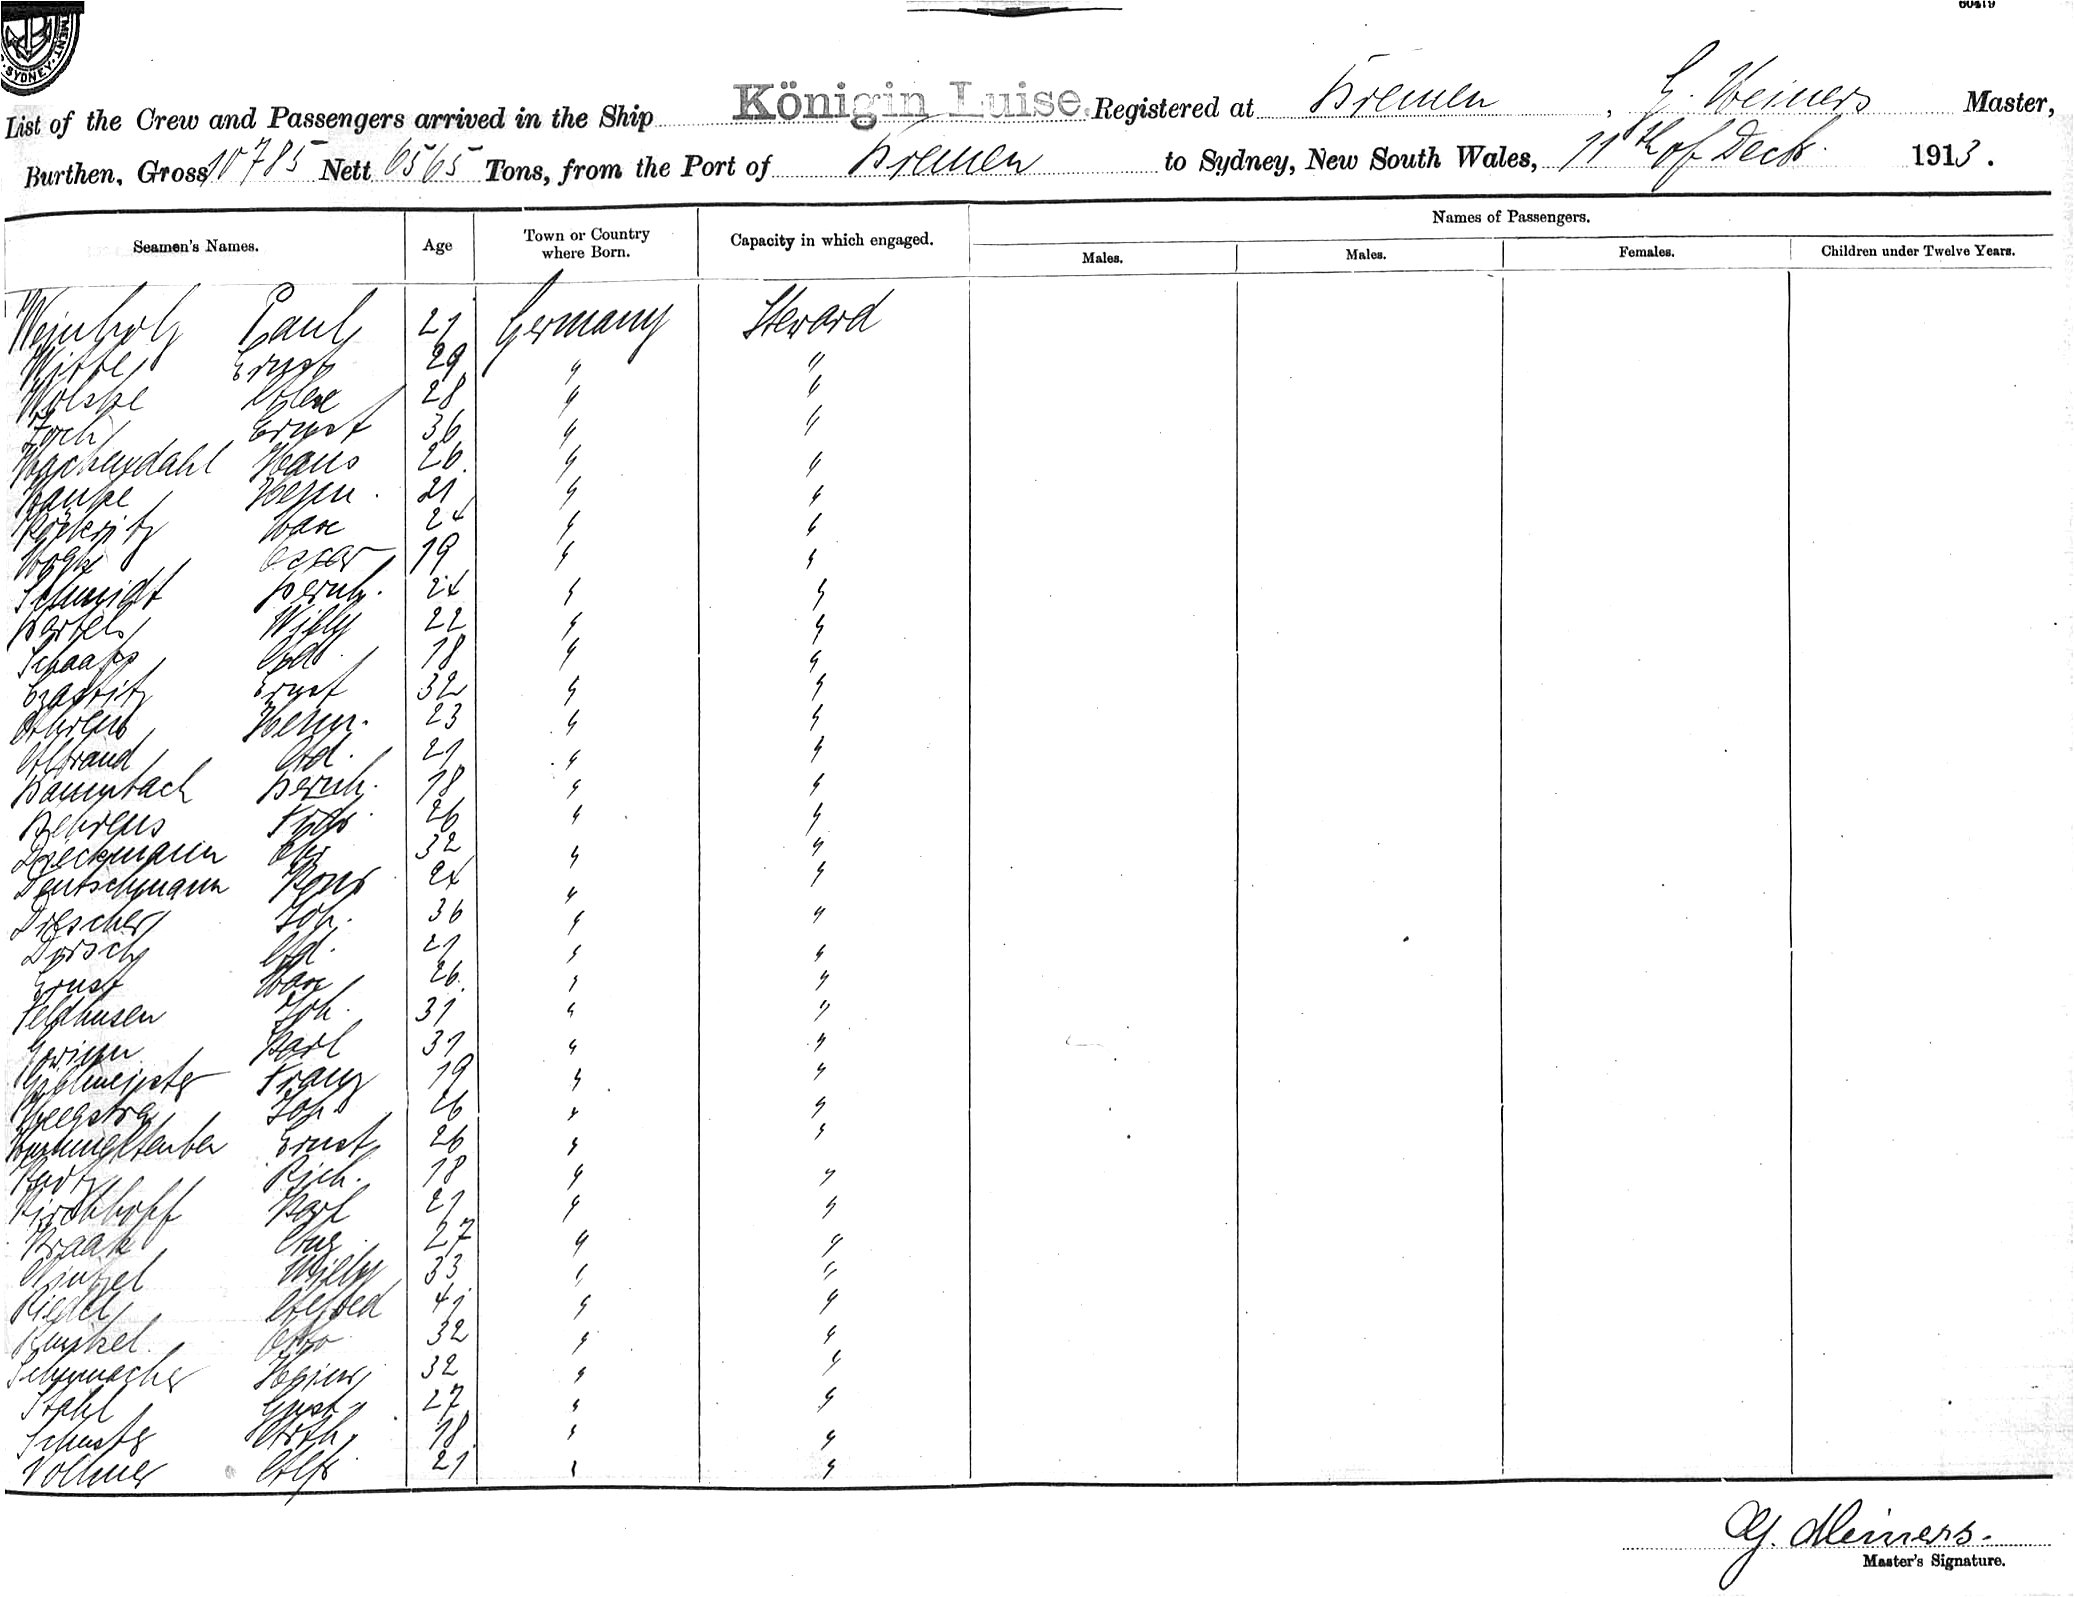 60419
MENT
SYDNEY
List of the Crew and Passengers arrived in the Ship Königin Luise. Registered at Bremen, G. Meiners Master,
Burthen, Gross 10785 Nett 6565 Tons, from the Port of Bremen to Sydney, New South Wales, 11th of Decbr. 1913.
Names of Passengers.
Seamen's Names. Age Town or Country where Born. Capacity in which engaged. Males. Males. Females. Children under Twelve Years.
Weinholz Paul 21 Germany Steward
Witte Ernst 29 " "
Wolske Alex 28 " "
Ernst 36 " "
Hachendahl Hans 26 " "
Hanke Herm. 21 " "
Max 24 " "
Oscar 19 " "
Schmidt Bernh. 24 " "
Bartels Willy 22 " "
Schaaps 18 " "
Ernst 32 " "
Ahrens Herm. 23 " "
Ad. 21 " "
Bernh. 18 " "
Behrens Frdr. 26 " "
Dieckmann Chr 32 " "
Deutschmann Konr 24 " "
Drescher Joh. 36 " "
Dorsch Ad. 21 " "
Ernst Max 26 " "
Feldhusen Joh. 31 " "
Karl 31 " "
Franz 19 " "
Heegstra Joh 26 " "
Ernst 26 " "
Rich. 18 " "
Kirchhoff Karl 21 " "
Braak Aug 27 " "
Willy 33 " "
Riedel Alfred 41 " "
Kunkel Otto 32 " "
Schumacher Heinr. 32 " "
Stahl Gust. 27 " "
Schuster Arth. 18 " "
Vollmer Alfr. 21 " "
G. Meiners.
Master's Signature.